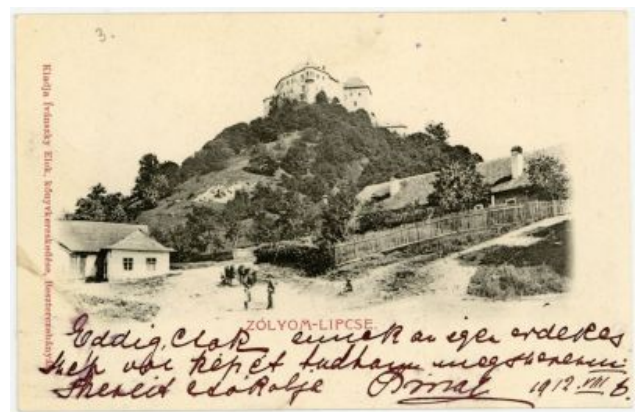 3.
Kiadja Ivánszky Elek, könyvkereskedése, Beszterczebánya
ZÓLYOM-LIPCSE.
Eddig csak ennek az igen érdekes
szép vár képét tudtam megszerezni
Szeretettel csókolja
1912 VIII 6.